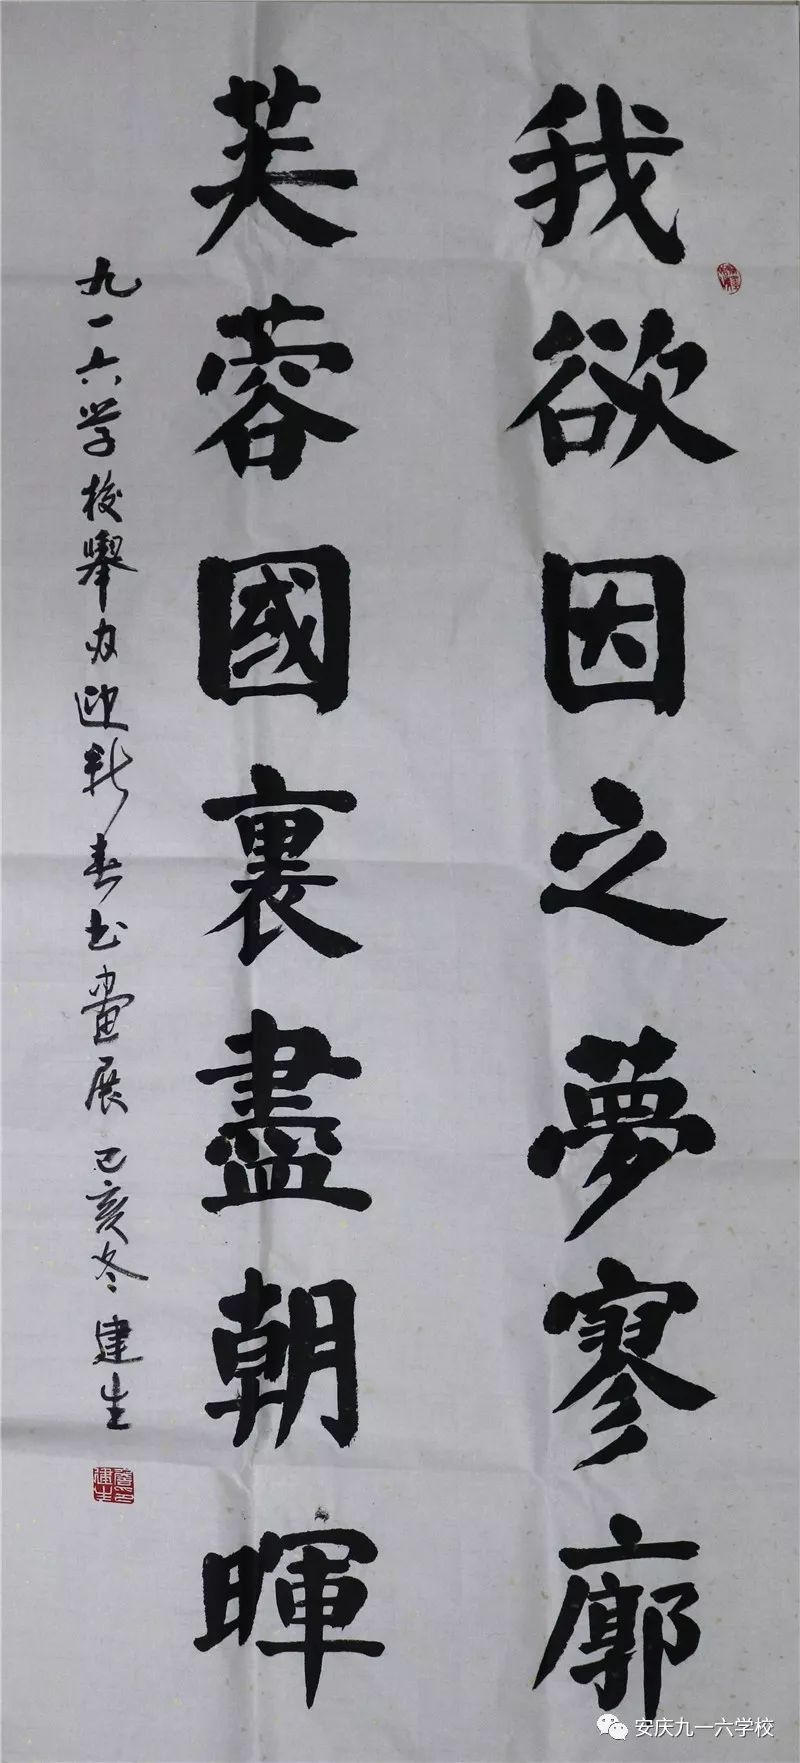 我欲因之夢寥廓
芙蓉國裏盡朝暉
九一六学校舉办迎新春书畫展 己亥冬 建生
安庆九一六学校